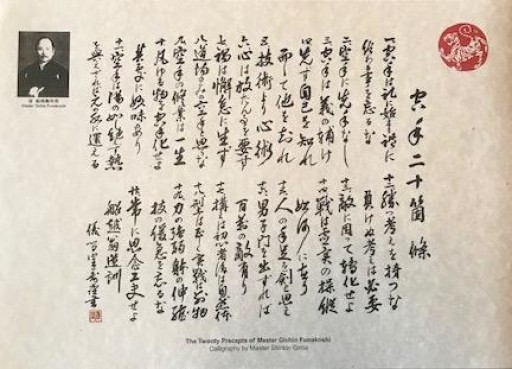 空手二十箇條
一空手は礼に始り礼に
終る事を忘るな
二空手に先手なし
三空手は義の補け
四先づ自己を知れ
而して他を知れ
五技術より心術
六心は放たん事を要す
七禍は懈怠に生ず
八道場のみの空手と思ふな
九空手の修業は一生
十凡ゆる物を空手化せよ
其処に妙味あり
十一空手は湯の如し絶えず熱
を與えざれば元の水に還る
十二勝つ考えを持つな
負けぬ考えは必要
十三敵に因って轉化せよ
十四戦は虚実の操縦
如何に在り
十五人の手足を剣と思え
十六男子門を出ずれば
百萬の敵有り
十七構えは初心者後は自然体
十八型は正しく実戦は別物
十九力の強弱躰の伸縮
技の緩急を忘るな
二十常に思念工夫せよ
船越翁遺訓
儀間真謹書
船越義珍
Master Gichin Funakoshi
The Twenty Precepts of Master Gichin Funakoshi
Calligraphy by Master Shinkin Gima